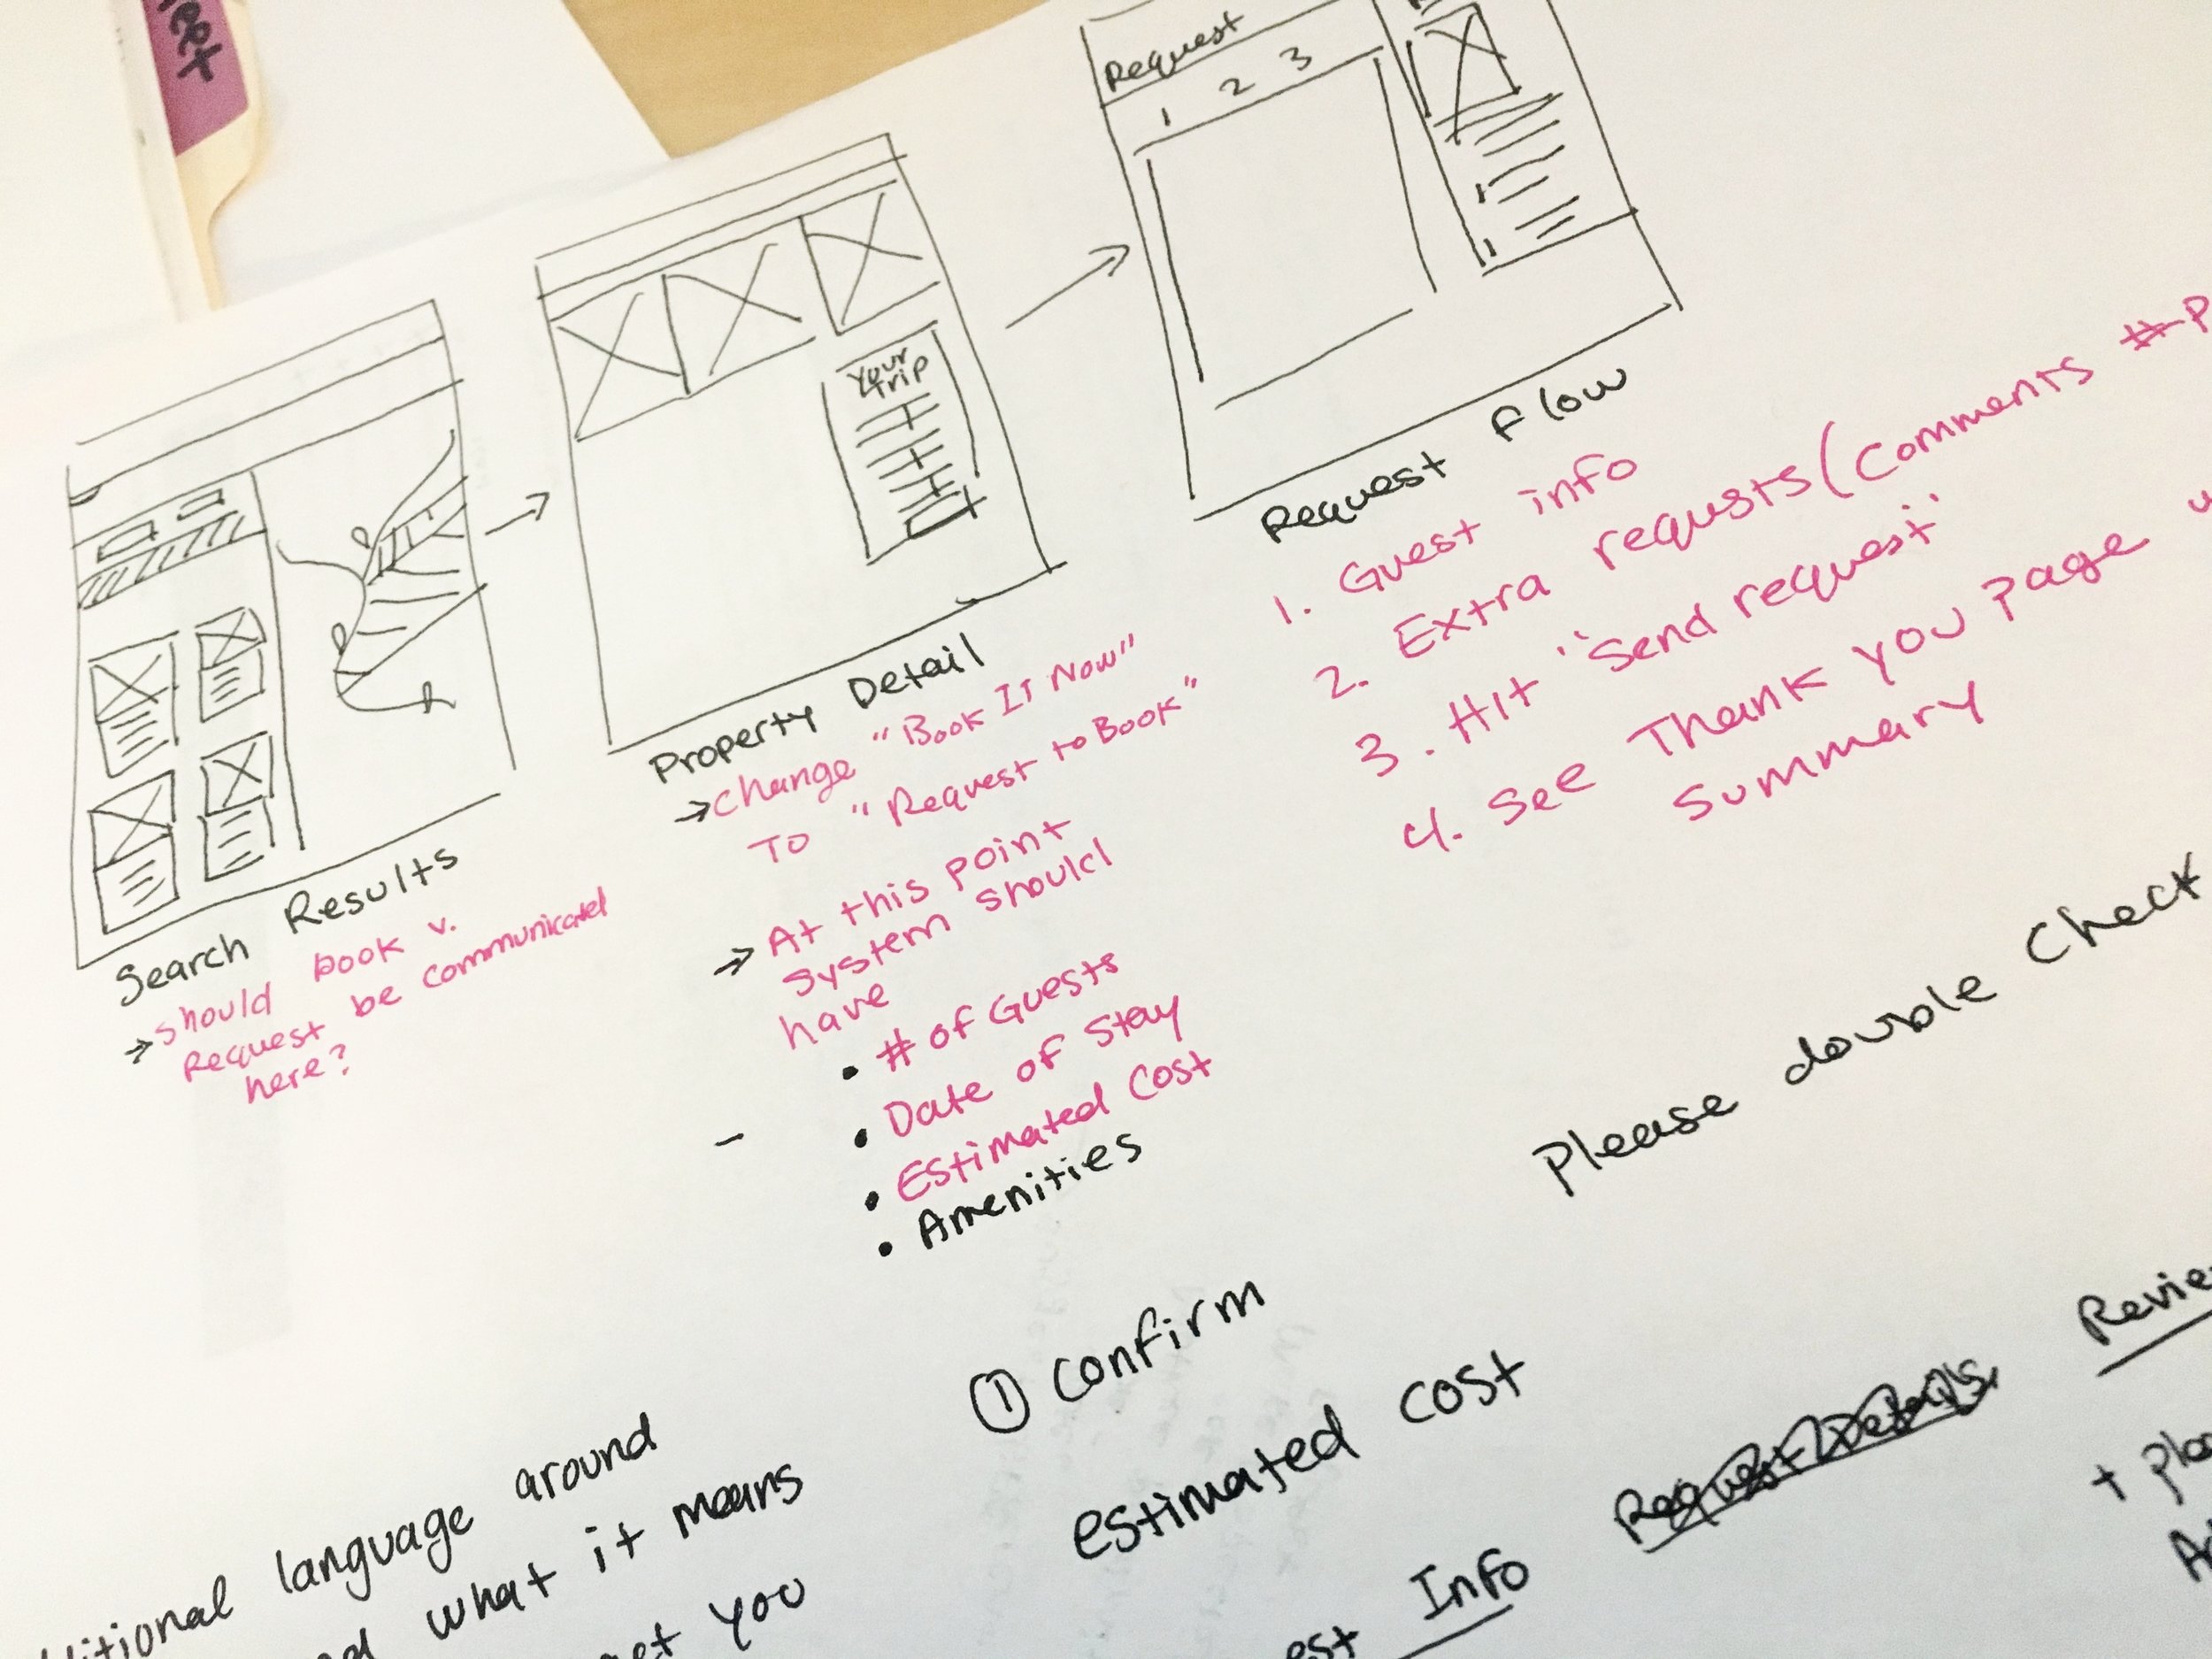 eet
Request
1 2 3
Your
Trip
Search Results
→ should book v.
Request be communicated
here?
Property Detail
→ change "Book It Now"
To "Request to Book"
→ At this point
system should
have
• # of Guests
• Date of Stay
• Estimated Cost
• Amenities
Request Flow
1. Guest info
2. Extra requsts (Comments #P
3. Hit "Send request"
4. See Thank you page
Summary
Please double check
① Confirm
estimated cost
est Info
Request Details
Revie
+ plea
ditional language around
what it means
get you